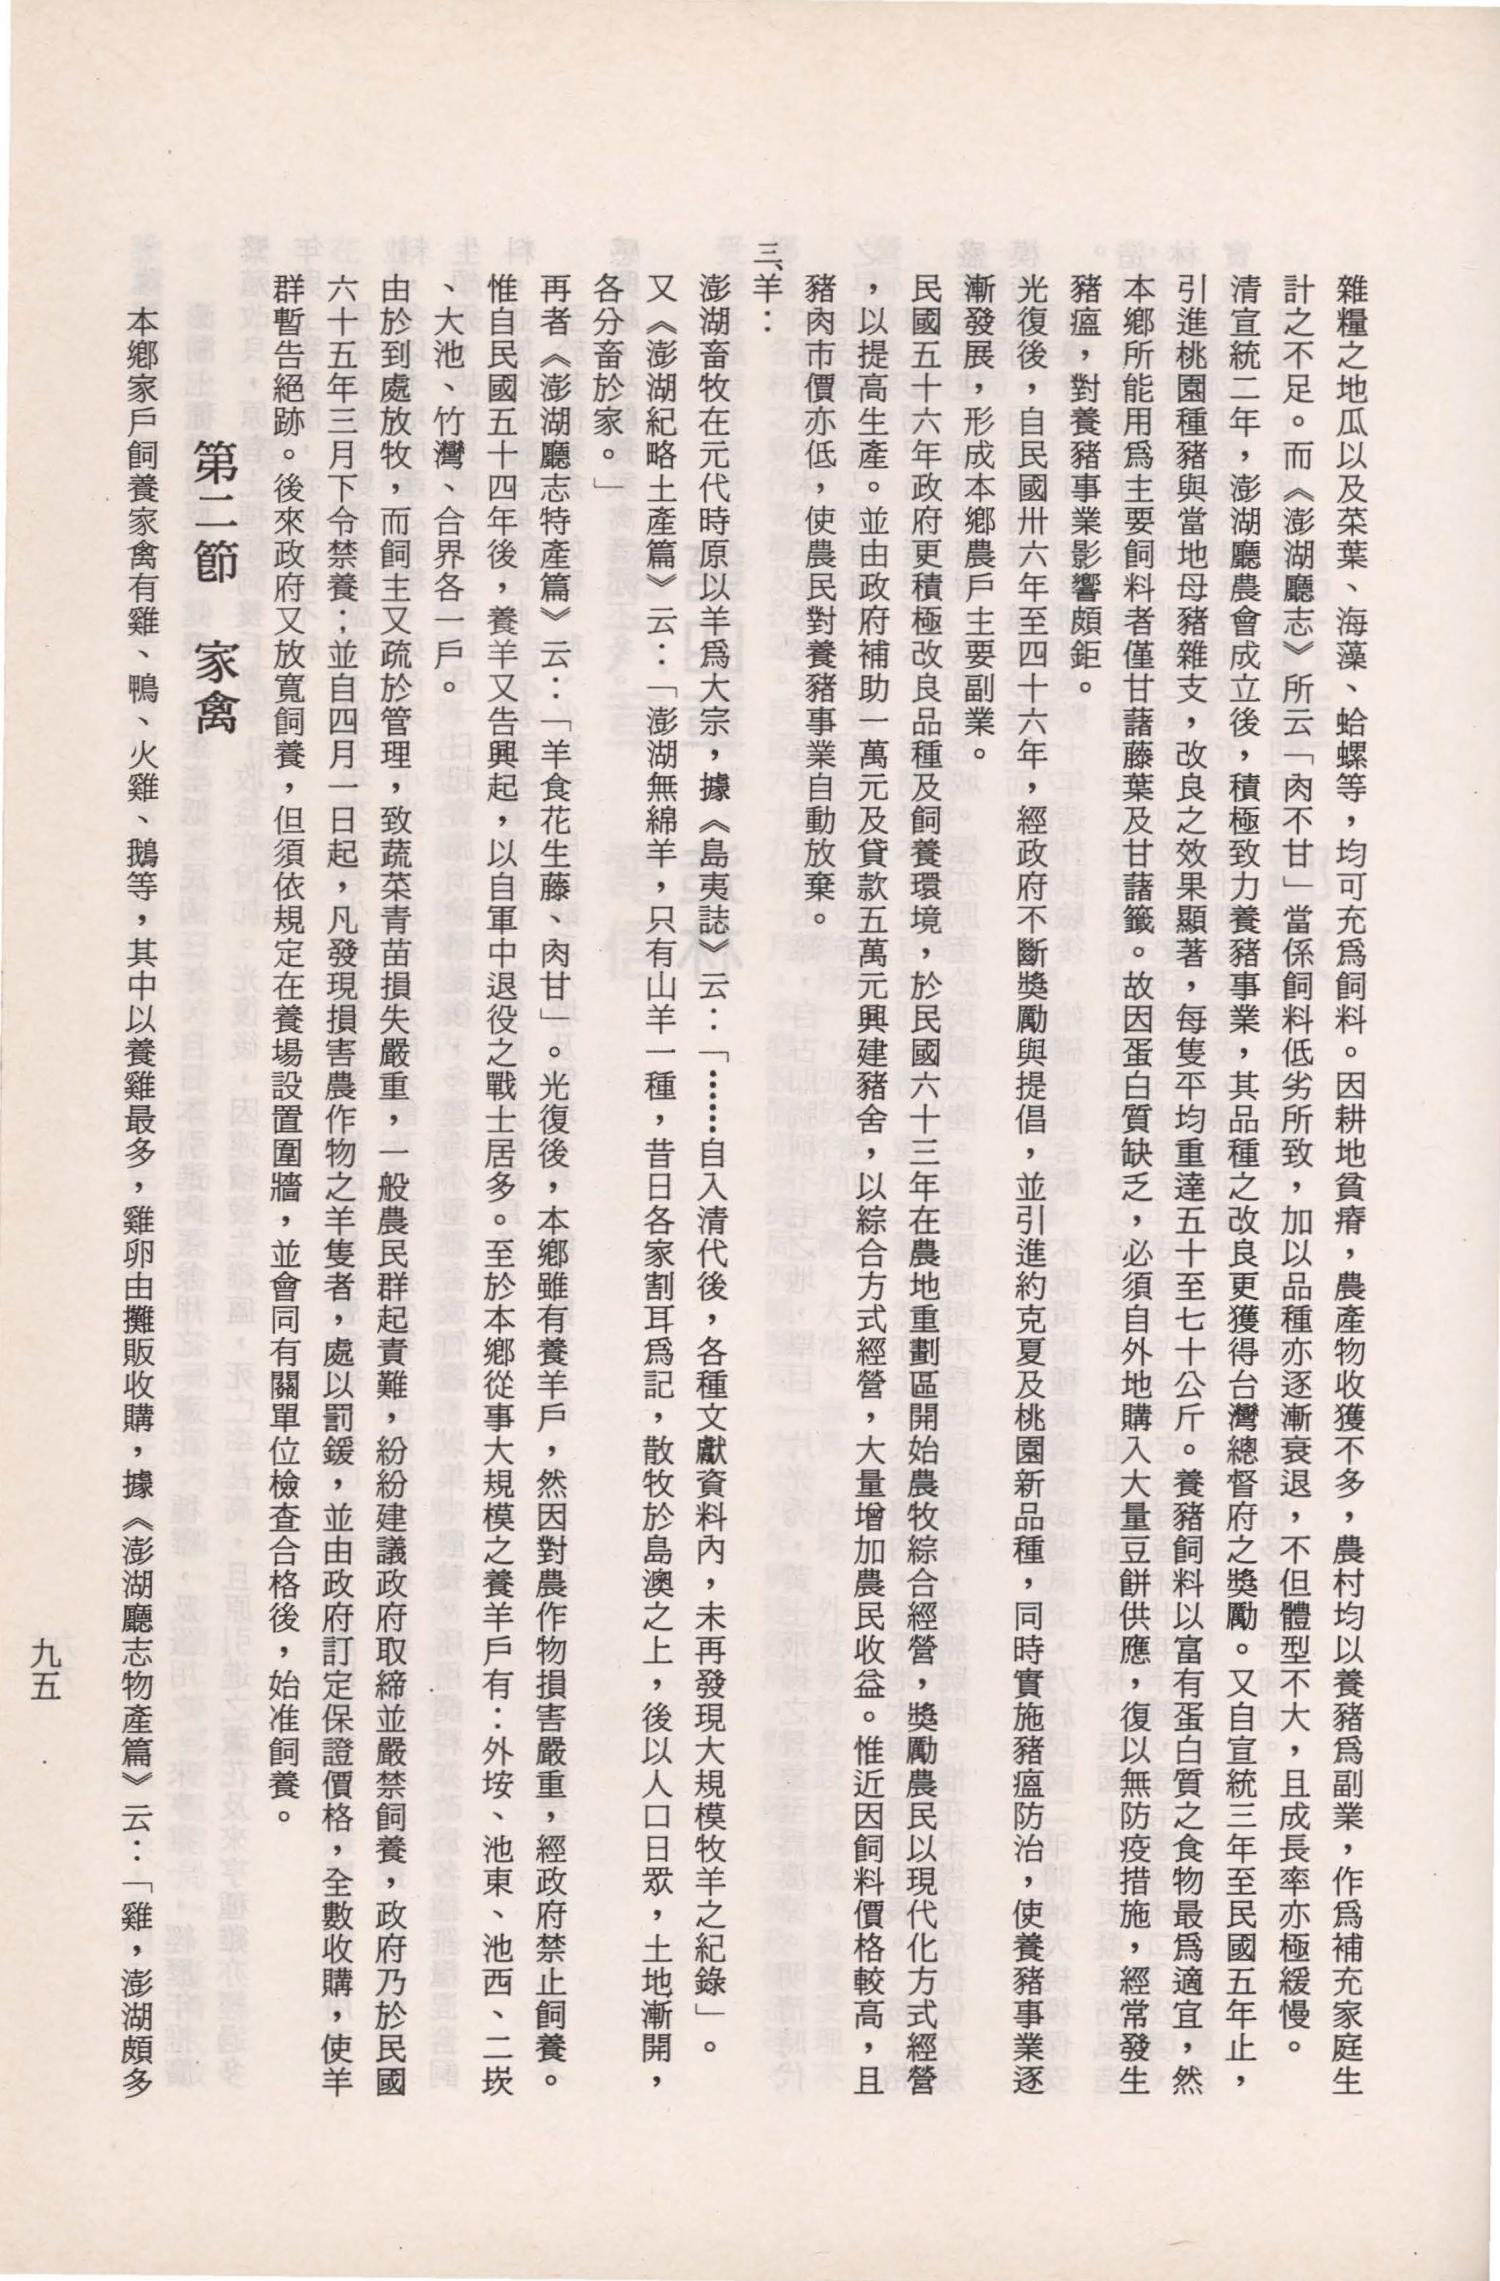 雜糧之地瓜以及菜葉、海藻、蛤螺等，均可充爲飼料。因耕地貧瘠，農產物收獲不多，農村均以養豬爲副業，作爲補充家庭生
計之不足。而《澎湖廳志》所云「肉不甘」當係飼料低劣所致，加以品種亦逐漸衰退，不但體型不大，且成長率亦極緩慢。
清宣統二年，澎湖廳農會成立後，積極致力養豬事業，其品種之改良更獲得台灣總督府之獎勵。又自宣統三年至民國五年止，
引進桃園種豬與當地母豬雜支，改良之效果顯著，每隻平均重達五十至七十公斤。養豬飼料以富有蛋白質之食物最爲適宜，然
本鄉所能用爲主要飼料者僅甘藷藤葉及甘藷籤。故因蛋白質缺乏，必須自外地購入大量豆餅供應，復以無防疫措施，經常發生
豬瘟，對養豬事業影響頗鉅。
光復後，自民國卅六年至四十六年，經政府不斷獎勵與提倡，並引進約克夏及桃園新品種，同時實施豬瘟防治，使養豬事業逐
漸發展，形成本鄉農戶主要副業。
民國五十六年政府更積極改良品種及飼養環境，於民國六十三年在農地重劃區開始農牧綜合經營，獎勵農民以現代化方式經營
，以提高生產。並由政府補助一萬元及貸款五萬元興建豬舍，以綜合方式經營，大量增加農民收益。惟近因飼料價格較高，且
豬肉市價亦低，使農民對養豬事業自動放棄。
三、羊：
澎湖畜牧在元代時原以羊爲大宗，據《島夷誌》云：「……自入清代後，各種文獻資料內，未再發現大規模牧羊之紀錄」。
又《澎湖紀略土產篇》云：「澎湖無綿羊，只有山羊一種，昔日各家割耳爲記，散牧於島澳之上，後以人口日眾，土地漸開，
各分畜於家。」
再者《澎湖廳志特產篇》云：「羊食花生藤、肉甘」。光復後，本鄉雖有養羊戶，然因對農作物損害嚴重，經政府禁止飼養。
惟自民國五十四年後，養羊又告興起，以自軍中退役之戰士居多。至於本鄉從事大規模之養羊戶有：外垵、池東、池西、二崁
、大池、竹灣、合界各一戶。
由於到處放牧，而飼主又疏於管理，致蔬菜青苗損失嚴重，一般農民群起責難，紛紛建議政府取締並嚴禁飼養，政府乃於民國
六十五年三月下令禁養；並自四月一日起，凡發現損害農作物之羊隻者，處以罰鍰，並由政府訂定保證價格，全數收購，使羊
群暫告絕跡。後來政府又放寬飼養，但須依規定在養場設置圍牆，並會同有關單位檢查合格後，始准飼養。
第二節　家禽
本鄉家戶飼養家禽有雞、鴨、火雞、鵝等，其中以養雞最多，雞卵由攤販收購，據《澎湖廳志物產篇》云：「雞，澎湖頗多
九五